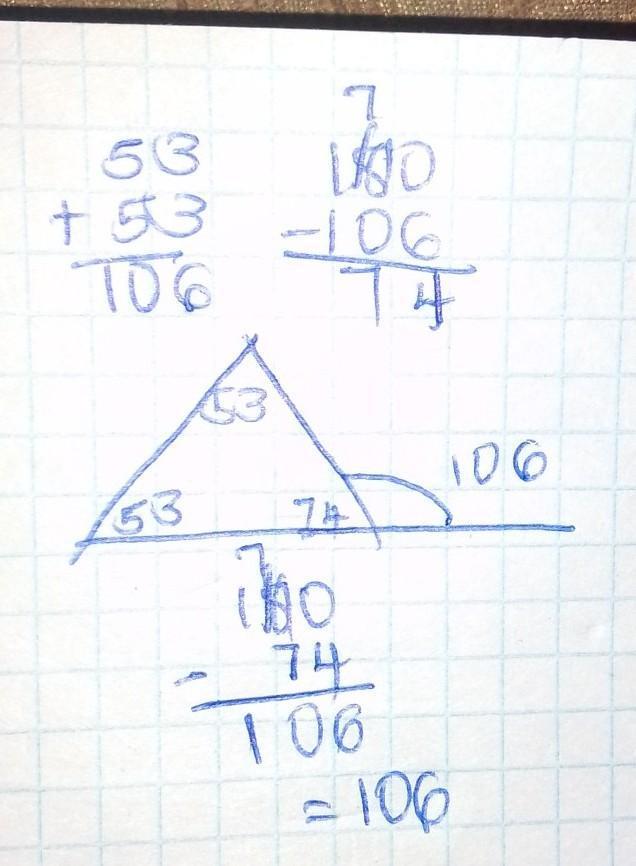 53
+ 53
106
7
180
-106
74
53
53
74
106
7
180
- 74
106
= 106